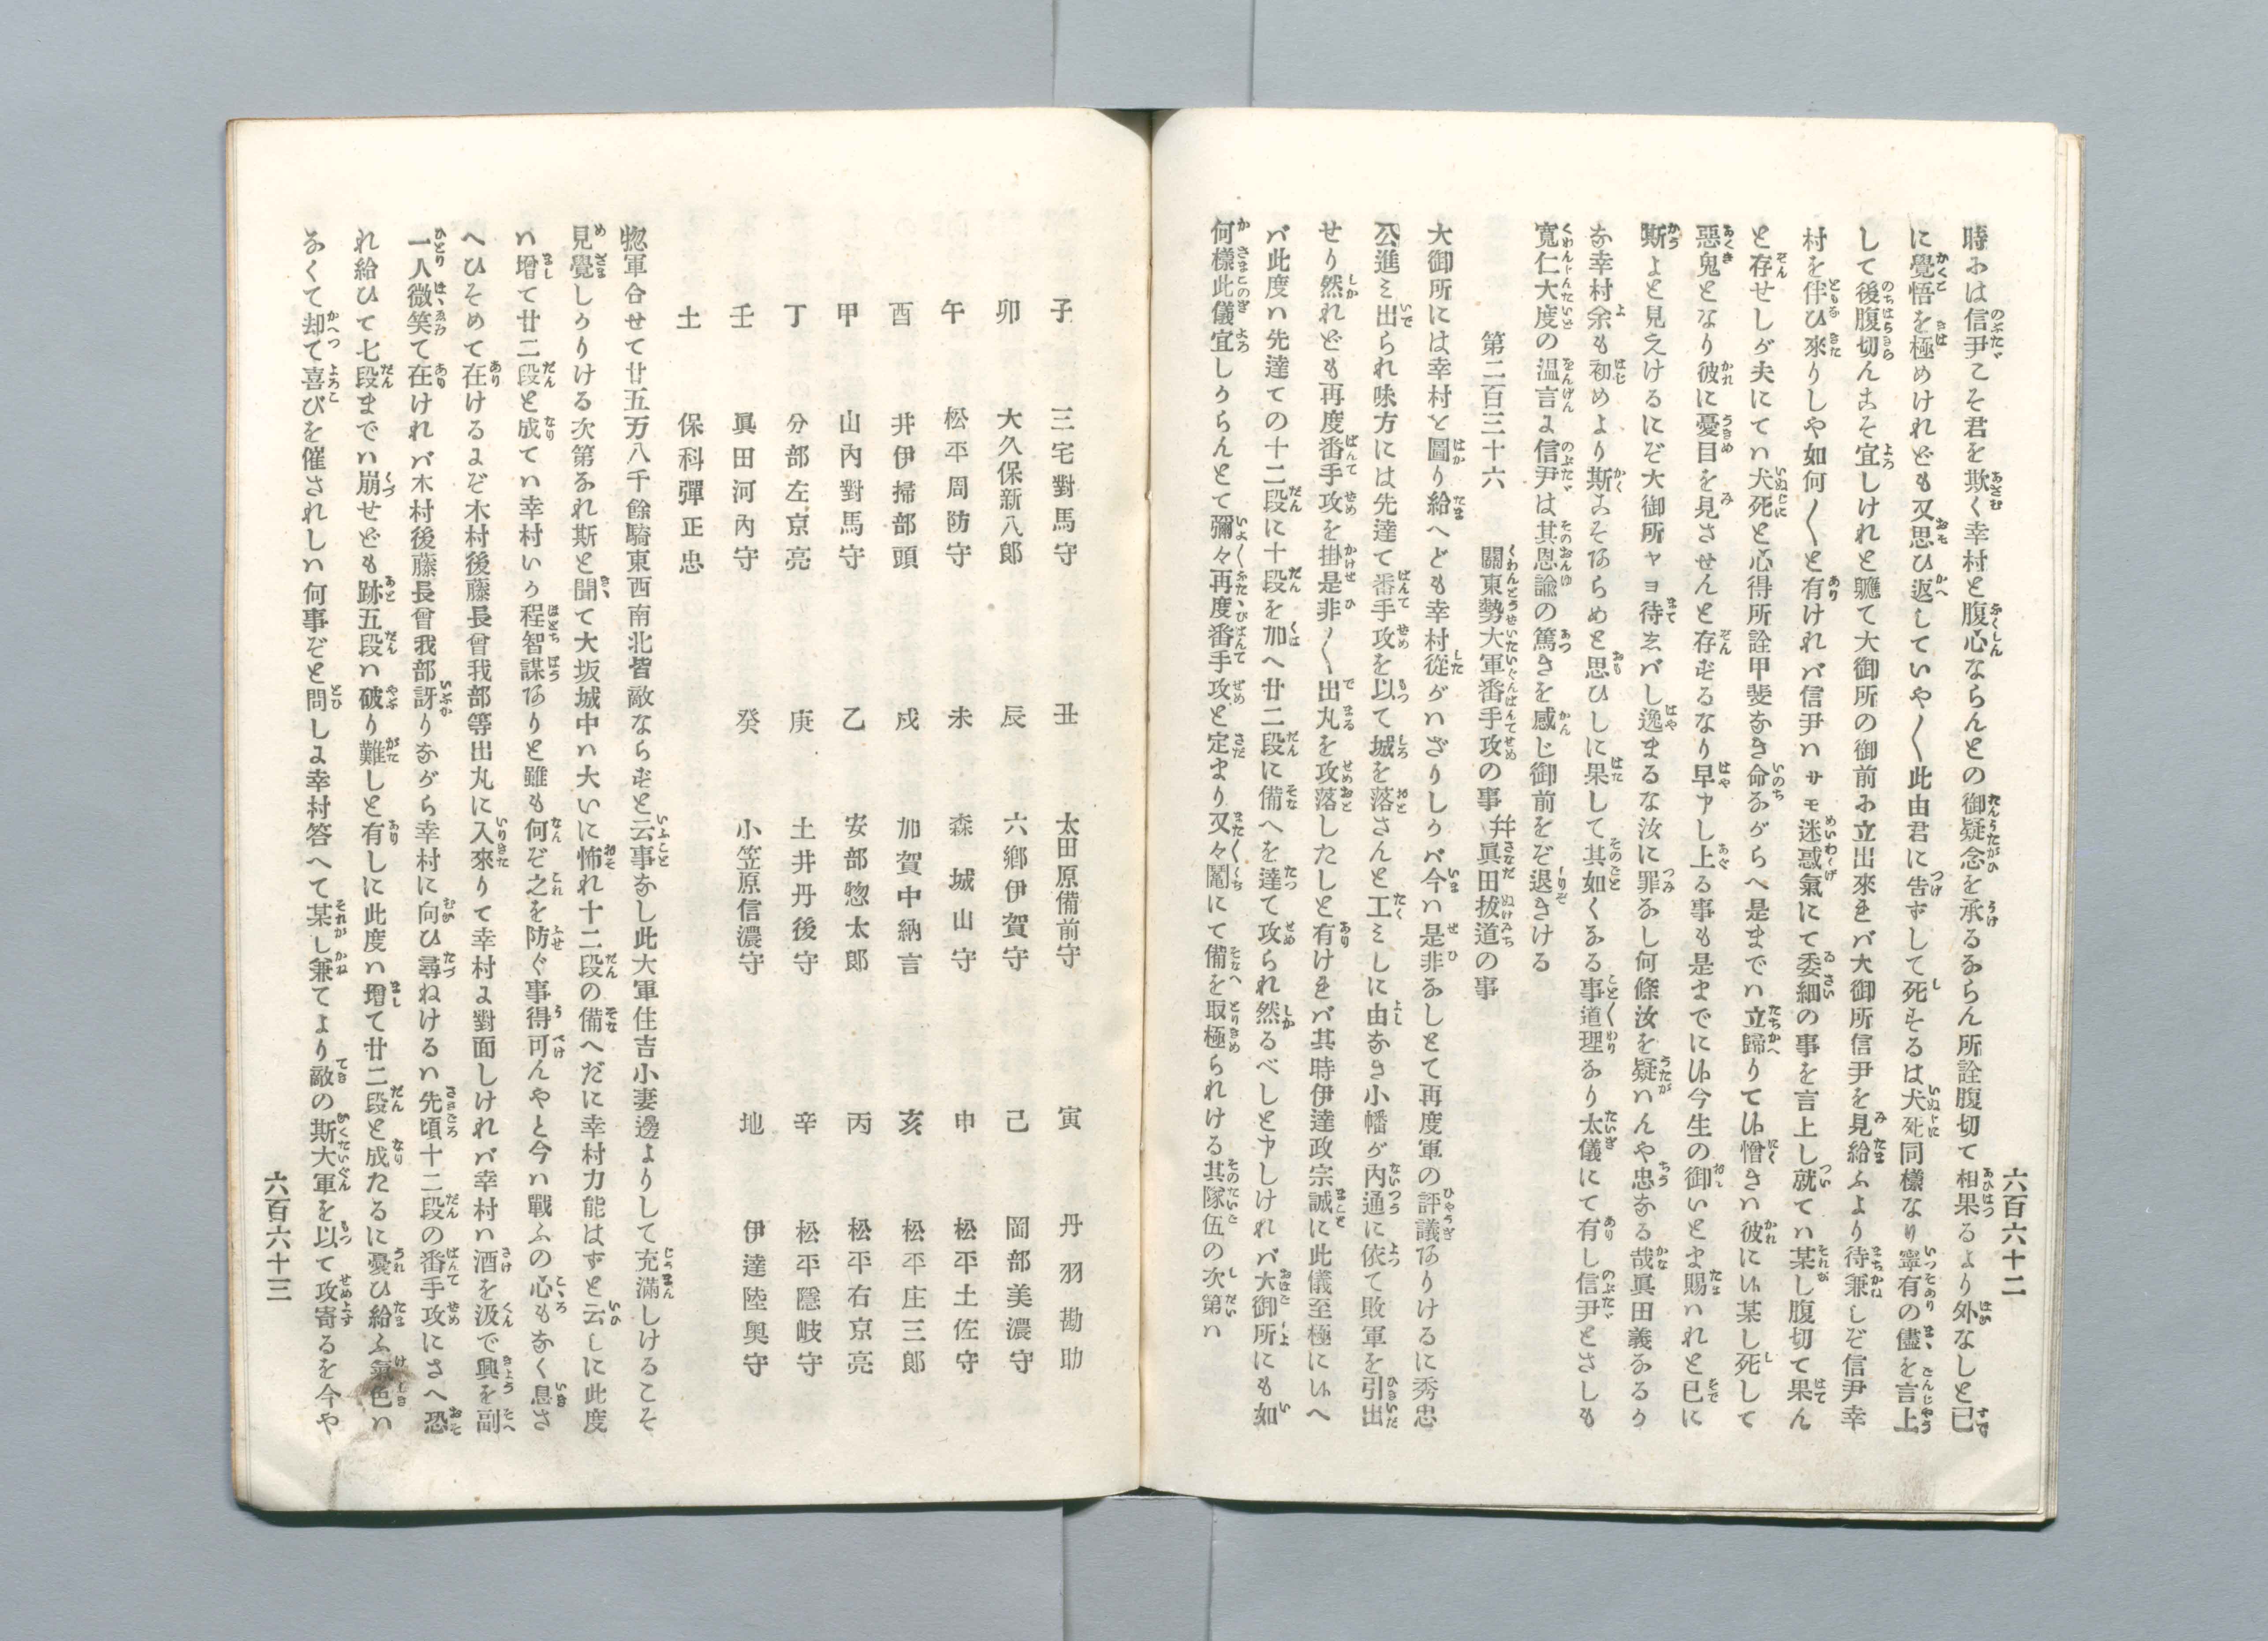 六百六十二
時には信尹こそ君を欺く幸村と腹心ならんとの御疑念を承るならん所詮腹切て相果るより外なしと已
に覺悟を極めけれども又思ひ返していや〱此由君に吿ずして死するは犬死同樣なり寧有の儘を言上
して後腹切んこそ宜しけれと軈て大御所の御前に立出來れバ大御所信尹を見給ふより待兼しぞ信尹幸
村を伴ひ來りしや如何〱と有けれバ信尹ハサモ迷惑氣にて委細の事を言上し就てハ某し腹切て果ん
と存せしが夫にてハ犬死と心得所詮甲斐なき命ながらへ是までハ立歸りて候憎きハ彼に候某し死して
惡鬼となり彼に憂目を見させんと存ずるなり早や申し上る事も是までに候今生の御いとま賜ハれと已に
斯よと見えけるにぞ大御所ヤヨ待ゑバし逸まるな汝に罪なし何條汝を疑ハんや忠なる哉眞田義なるか
な幸村余も初めより斯こそあらめと思ひしに果して其如くなる事道理なり太儀にて有し信尹とさしも
寬仁大度の溫言よ信尹は其恩諭の篤きを感じ御前をぞ退きける
第二百三十六　關東勢大軍番手攻の事幷眞田拔道の事
大御所には幸村と圖り給へども幸村從がハざりしかバ今ハ是非なしとて再度軍の評議ありけるに秀忠
公進ミ出られ味方には先達て番手攻を以て城を落さんと工ミしに由なき小幡が內通に依て敗軍を引出
せり然れども再度番手攻を掛是非〱出丸を攻落したしと有けれバ其時伊達政宗誠に此儀至極に候へ
バ此度ハ先達ての十二段に十段を加へ廿二段に備へを達て攻られ然るべしと申しけれバ大御所にも如
何樣此儀宜しからんとて彌々再度番手攻と定まり又々鬮にて備を取極られける其隊伍の次第ハ
子　三宅對馬守　丑　太田原備前守　寅　丹羽勘助
卯　大久保新八郎　辰　六鄕伊賀守　己　岡部美濃守
午　松平周防守　未　森城山守　申　松平土佐守
酉　井伊掃部頭　戌　加賀中納言　亥　松平庄三郎
甲　山內對馬守　乙　安部惣太郎　丙　松平右京亮
丁　分部左京亮　庚　土井丹後守　辛　松平隱岐守
壬　眞田河內守　癸　小笠原信濃守　地　伊達陸奧守
土　保科彈正忠
惣軍合せて廿五万八千餘騎東西南北皆敵ならずと云事なし此大軍住吉小妻邊よりして充滿しけるこそ
見覺しかりける次第なれ斯と聞て大坂城中ハ大いに怖れ十二段の備へだに幸村力能はずと云しに此度
ハ增て廿二段と成てハ幸村いか程智謀ありと雖も何ぞ之を防ぐ事得可んやと今ハ戰ふの心もなく息さ
へひそめて在けるよぞ木村後藤長曾我部等出丸に入來りて幸村よ對面しけれバ幸村ハ酒を汲で興を副
一人微笑て在けれバ木村後藤長曾我部訝りながら幸村に向ひ尋ねけるハ先頃十二段の番手攻にさへ恐
れ給ひて七段までハ崩せども跡五段ハ破り難しと有しに此度ハ增て廿二段と成たるに憂ひ給ふ氣色ハ
なくて却て喜びを催されしハ何事ぞと問しよ幸村答へて某し兼てより敵の斯大軍を以て攻寄るを今や
六百六十三